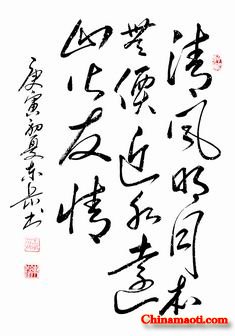 清風明月本
無價近水遠
山皆有情
庚寅初夏东岳书
Chinamaoti.com